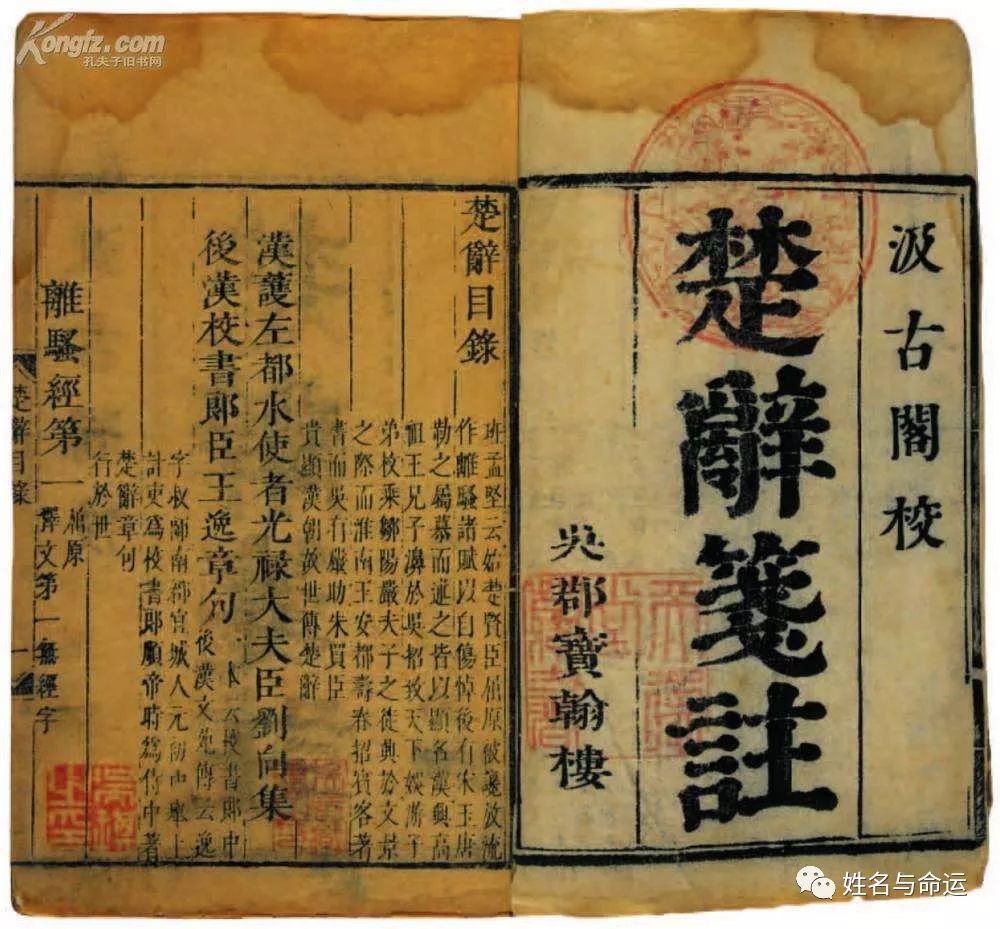 Kongfz.com
孔夫子旧书网
汲古閣校
楚辭箋註
吳郡寶翰樓
楚辭目錄
班孟堅云始楚賢臣屈原被讒放流
作離騷諸賦以自傷悼後有宋玉唐
勒之屬慕而述之皆以顯名漢興高
祖王兄子濞於吳招致天下娛游子
弟枚乘鄒陽嚴夫子之徒興於文景
之際而淮南王安都壽春招賓客著
書而吳有嚴助朱買臣
貴顯漢朝故世傳楚辭
漢護左都水使者光祿大夫臣劉向集
後漢校書郎臣王逸章句
後漢文苑傳云逸
字叔師南郡宜城人元初中舉上
計吏為校書郎順帝時為侍中著
楚辭章句
行於世
離騷經第一
屈原
釋文第一無經字
楚辭目錄
一
姓名与命运